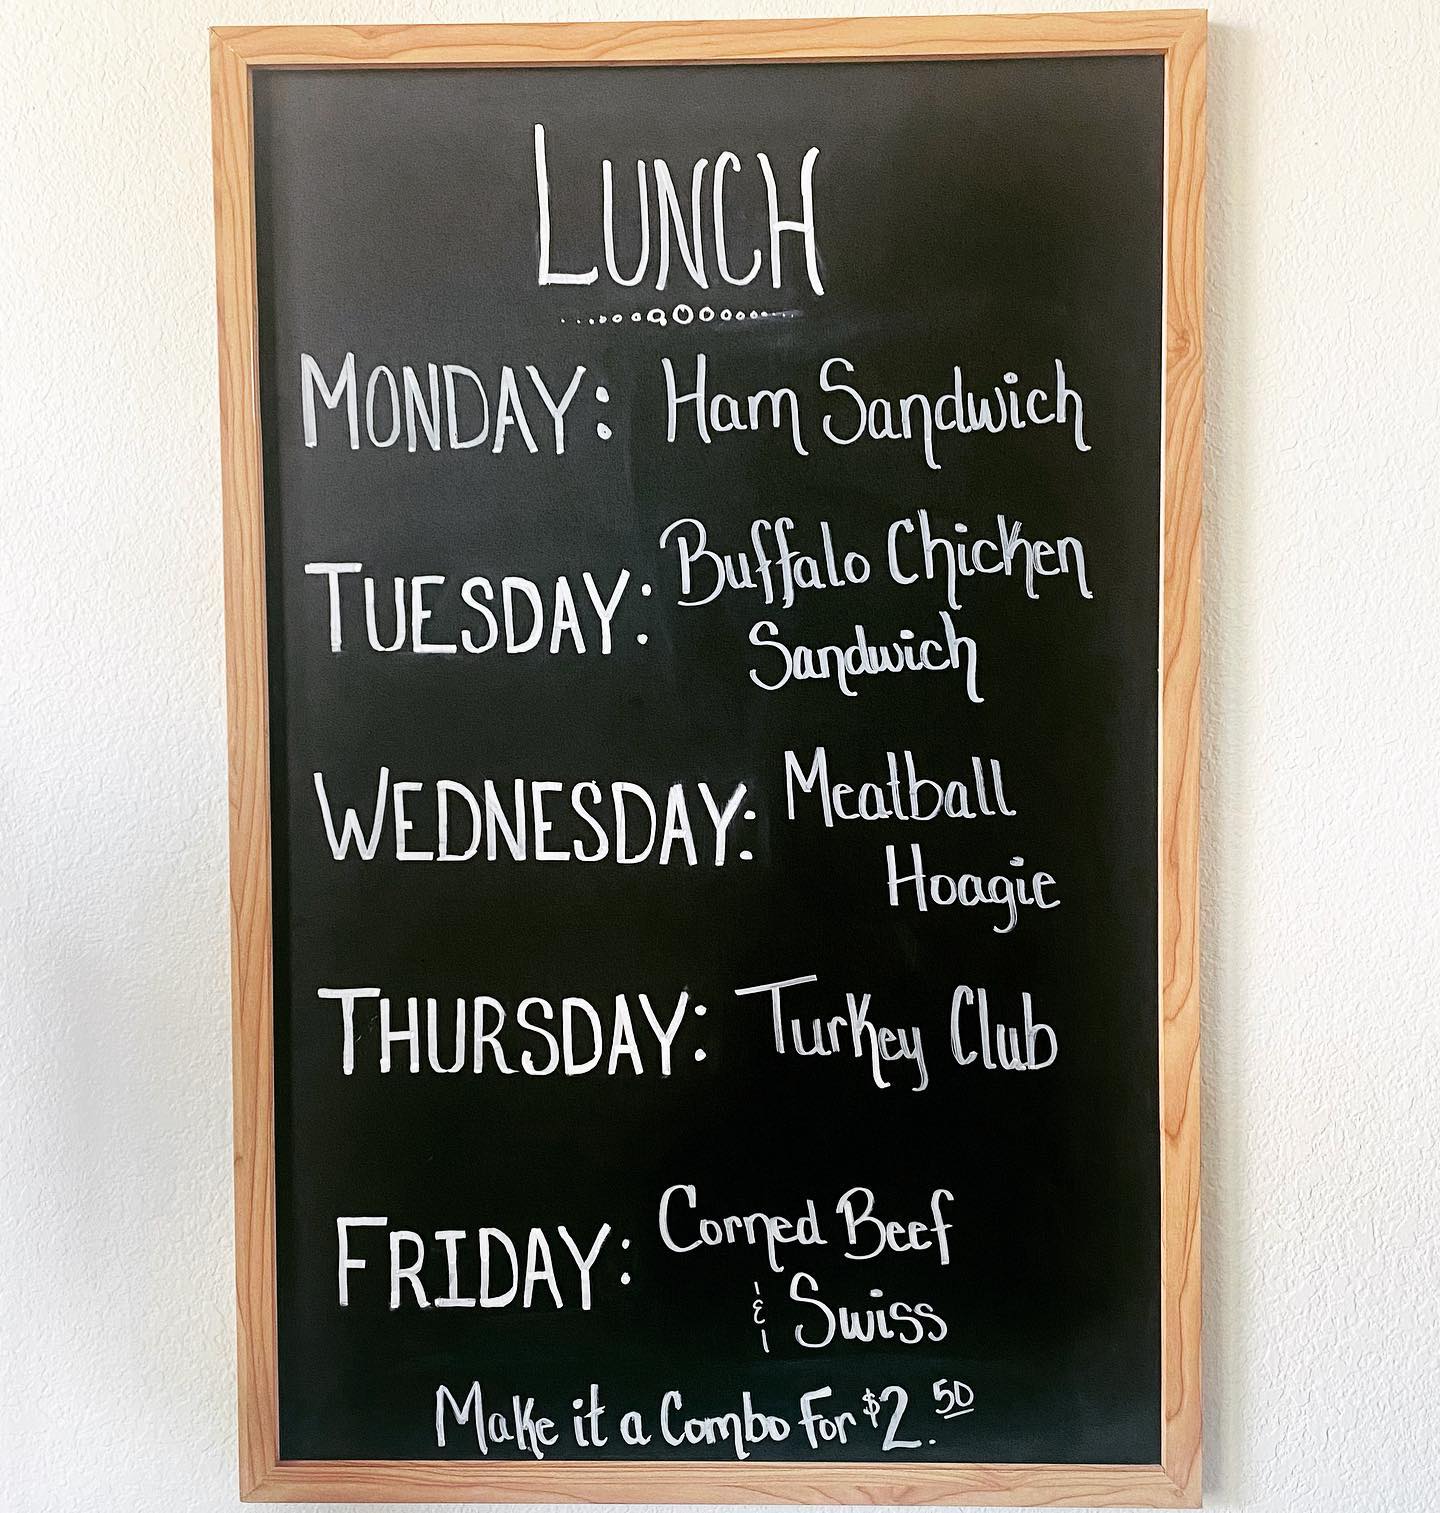 LUNCH
MONDAY: Ham Sandwich
TUESDAY: Buffalo Chicken
Sandwich
WEDNESDAY: Meatball
Hoagie
THURSDAY: Turkey Club
FRIDAY: Corned Beef
& Swiss
Make it a Combo for $2.50